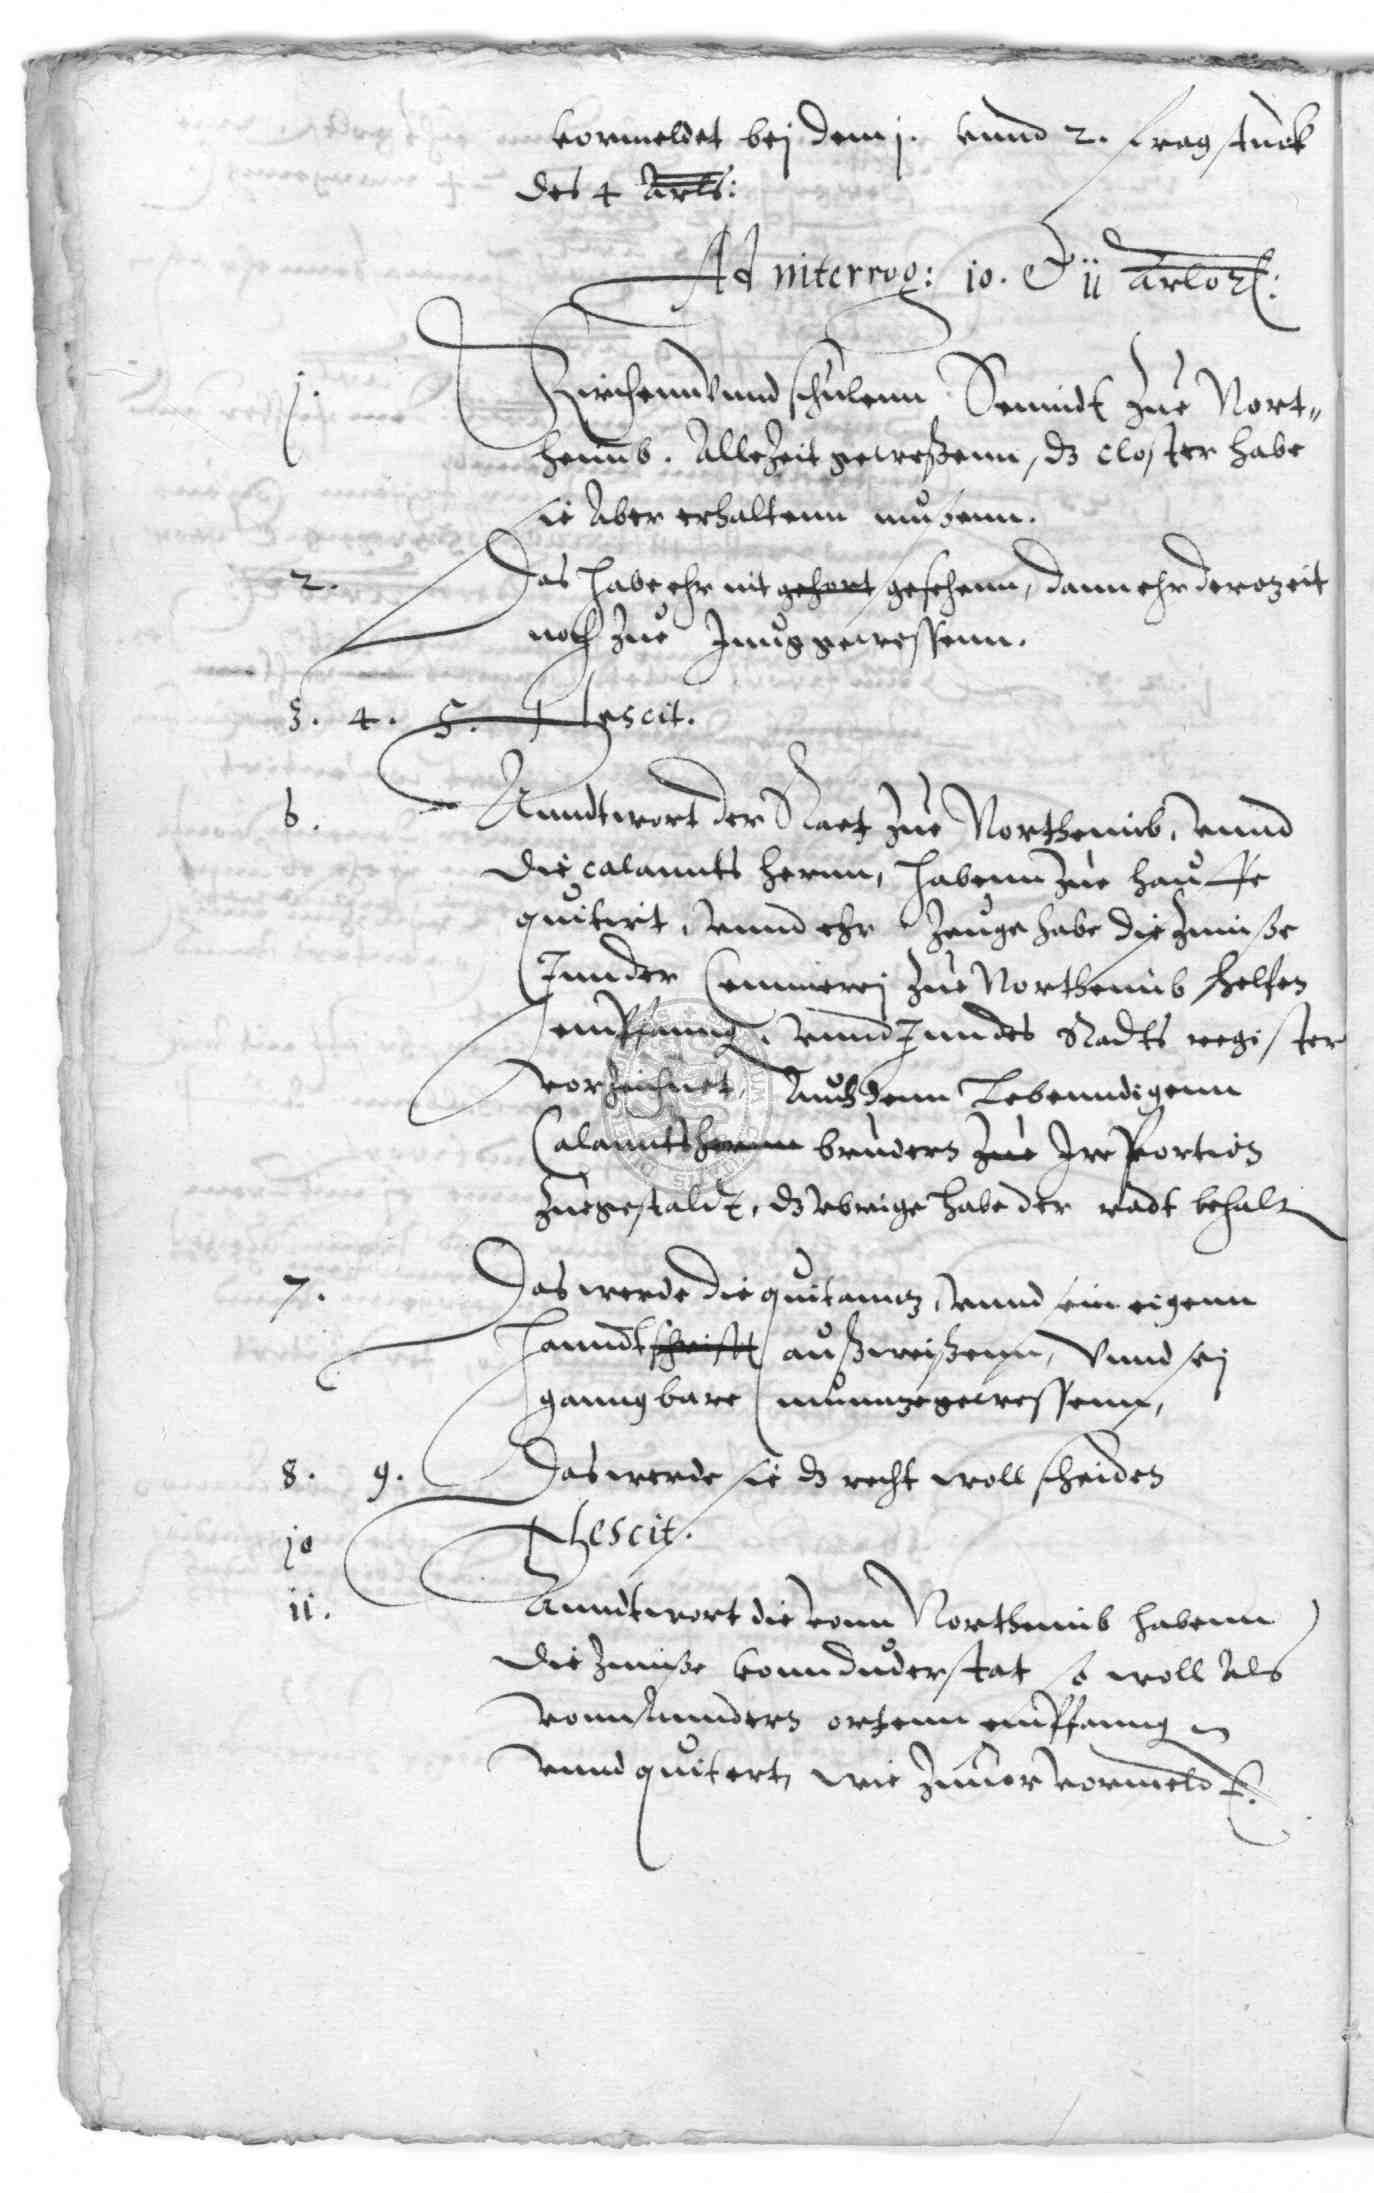 vormeldet bej dem j. vnnd 2. fragstuck
des 4 Artls:
Ad interrog: 10. & 11 artlor:
1. Kirchenn vnnd schulenn Seinndt zue Nort„
heimb. Allezeit geweßenn, dz closter habe
sie Aber erhaltenn mussenn.
2. Das habe ehr nit gehort gesehenn, dann ehr derozeit
noch zue Jung gewessenn.
3. 4. 5. Nescit.
6. Anndtwort der Raet zue Northeimb, vnnd
die calannts hernn, habenn zue hauffe
quitirt, vnnd ehr Zeuge habe die Zinnße
Jnn der Cemmerej zue Northeimb helfen
empfanng. vnnd Jnn des Radts register
vorzeichnet, Auch denn Lebenndigenn
Calanntshernn brudern zue Jre Portion
zuegestaldt, dz vbrige habe der radt behalt
7. Das werde die quitanntz, vnnd sein eigenn
Hanndtschrifft außweißenn, Vnnd sej
ganngbare munntze gewessenn,
8. 9. Das werde sie dz recht woll scheiden
10 Nescit.
11. Anndtwort die vonn Northeimb habenn
die Zinnße vonn duderstat so woll Als
vonn Anndern ortenn empffanng
vnnd quitert, wie zuuor vormeldt.